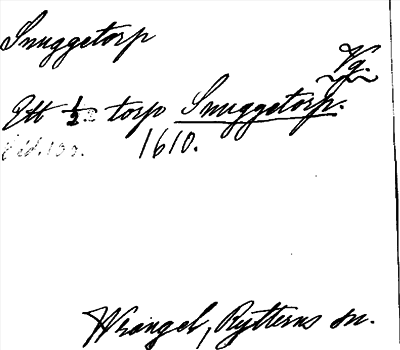 Snuggetorp
Vg.
Ett 1/2 torp Snuggetorp.
1610.
Wrangel, Rytterns sn.